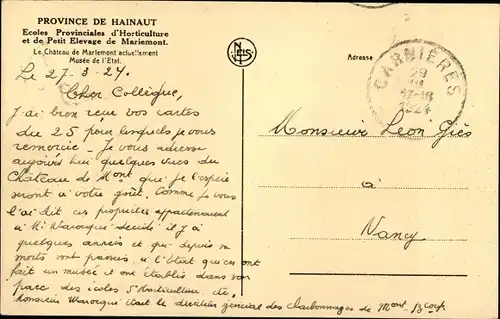 PROVINCE DE HAINAUT
Ecoles Provinciales d'Horticulture
et de Petit Elevage de Mariemont.
Le Château de Mariemont actuellement
Musée de l'Etat.
Le 27-3-24.
Cher Collègue,
J'ai bien reçu vos cartes
du 25 pour lesquels je vous
remercie - Je vous adresse
aujourd'hui quelques vues du
Château de Mont que je l'espère
seront à votre goût. Comme je vous
l'ai dit ces propriétés appartenaient
à Mr Warocqué décédé il y a
quelques années et qui depuis sa
morts sont passés à l'Etat qui en ont
fait un musée et one établis dans son
parc des écoles d'Horticulture etc.
Monsieur Warocqué était le directeur général des charbonnages de Mont. Bcoup.
NELS
Adresse
CARNIÈRES
29
III
17-18
1924
Monsieur Léon Giés
à
Nancy